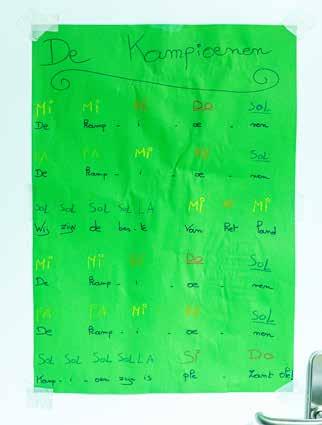 De Kampioenen
Mi Mi Re Do SOL
De Kamp - i - oe - nen
FA FA Mi SOL
De Kamp - i - oe - nen
SOL SOL SOL SOL LA Mi Mi
Wij zijn de bes-te van het land
Mi Mi Do SOL
De Kamp - i - oe - nen
FA FA Mi SOL
De Kamp - i - oe - nen
SOL SOL SOL SOL LA Si Do
Kamp - i - oen zijn is ple - zant